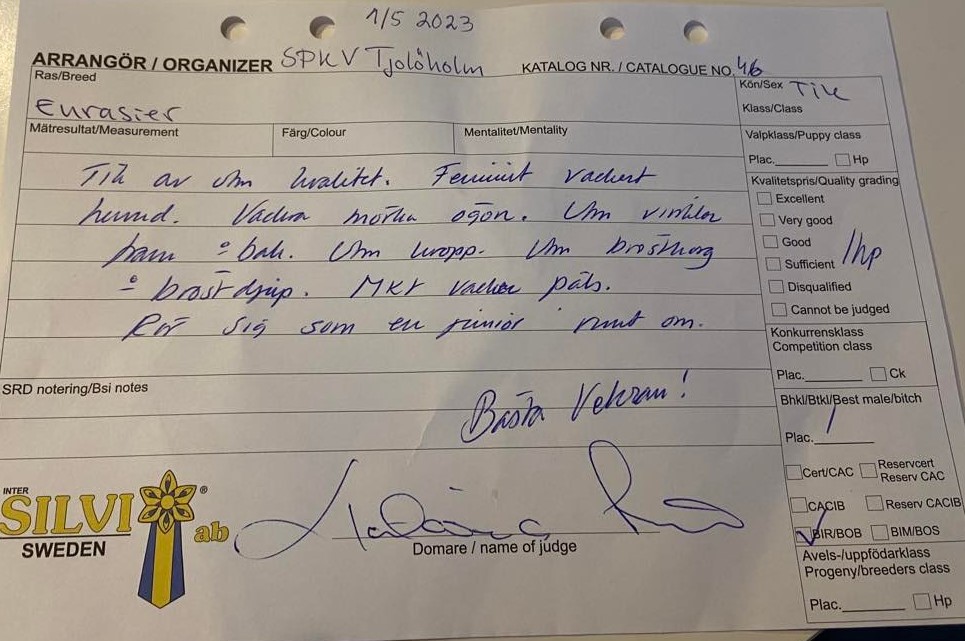 1/5 2023
ARRANGÖR / ORGANIZER SPKV Tjolöholm KATALOG NR. / CATALOGUE NO. 46
Ras/Breed
Eurasier
Kön/Sex Tik
Klass/Class
Mätresultat/Measurement Färg/Colour Mentalitet/Mentality
Valpklass/Puppy class
Plac. Hp
Tik av utm kvalitet. Feminint vackert
huvud. Vackra mörka ögon. Utm vinklar
fram o bak. Utm kropp. Utm bröstkorg
o bröstdjup. Mkt vacker päls.
Rör sig som en junior runt om.
Kvalitetspris/Quality grading
Excellent
Very good
Good
Sufficient 1hp
Disqualified
Cannot be judged
Konkurrensklass
Competition class
Plac. Ck
SRD notering/Bsi notes
Bästa Veteran!
Bhkl/Btkl/Best male/bitch
Plac. 1
Cert/CAC Reservcert
Reserv CAC
CACIB Reserv CACIB
BIR/BOB BIM/BOS
Avels-/uppfödarklass
Progeny/breeders class
Plac. Hp
INTER
SILVI ® ab
SWEDEN
Domare / name of judge